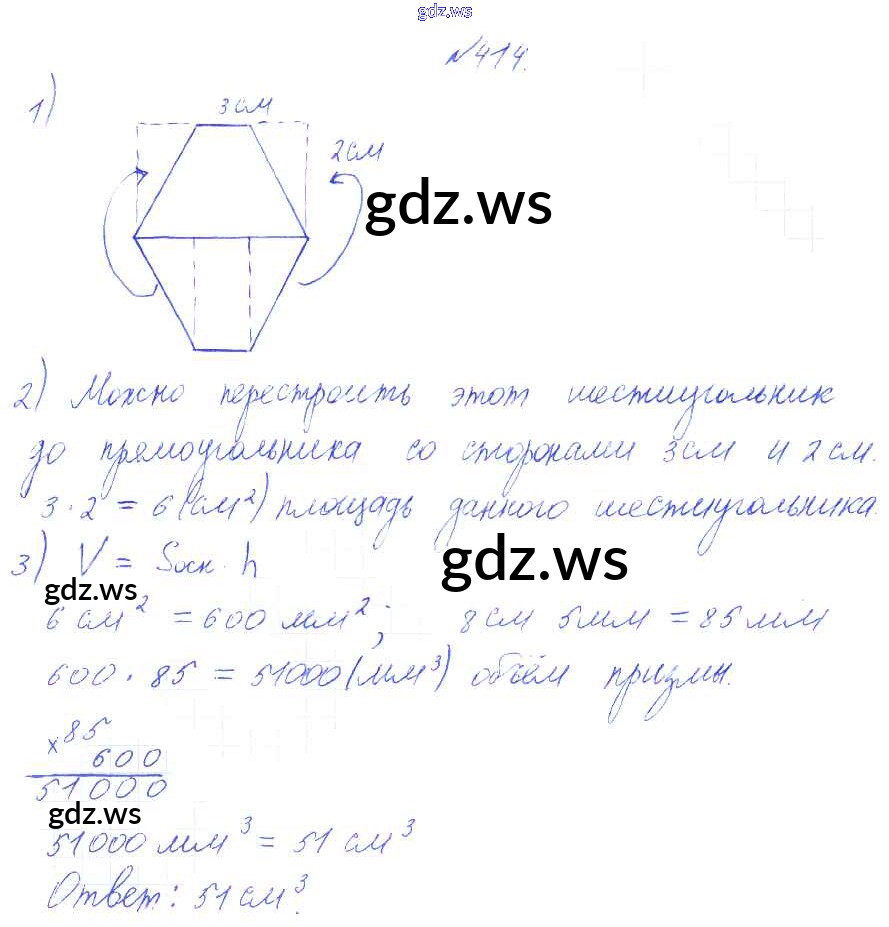 gdz.ws
№414.
1)
3 см
2 см
gdz.ws
2) Можно перестроить этот шестиугольник
до прямоугольника со сторонами 3 см и 2 см.
3 · 2 = 6 (см²) площадь данного шестиугольника.
3) V = Sосн · h
gdz.ws
gdz.ws
6 см² = 600 мм²; 8 см 5 мм = 85 мм
600 · 85 = 51000 (мм³) объём призмы.
× 85
600
51000
gdz.ws
51000 мм³ = 51 см³
Ответ: 51 см³.